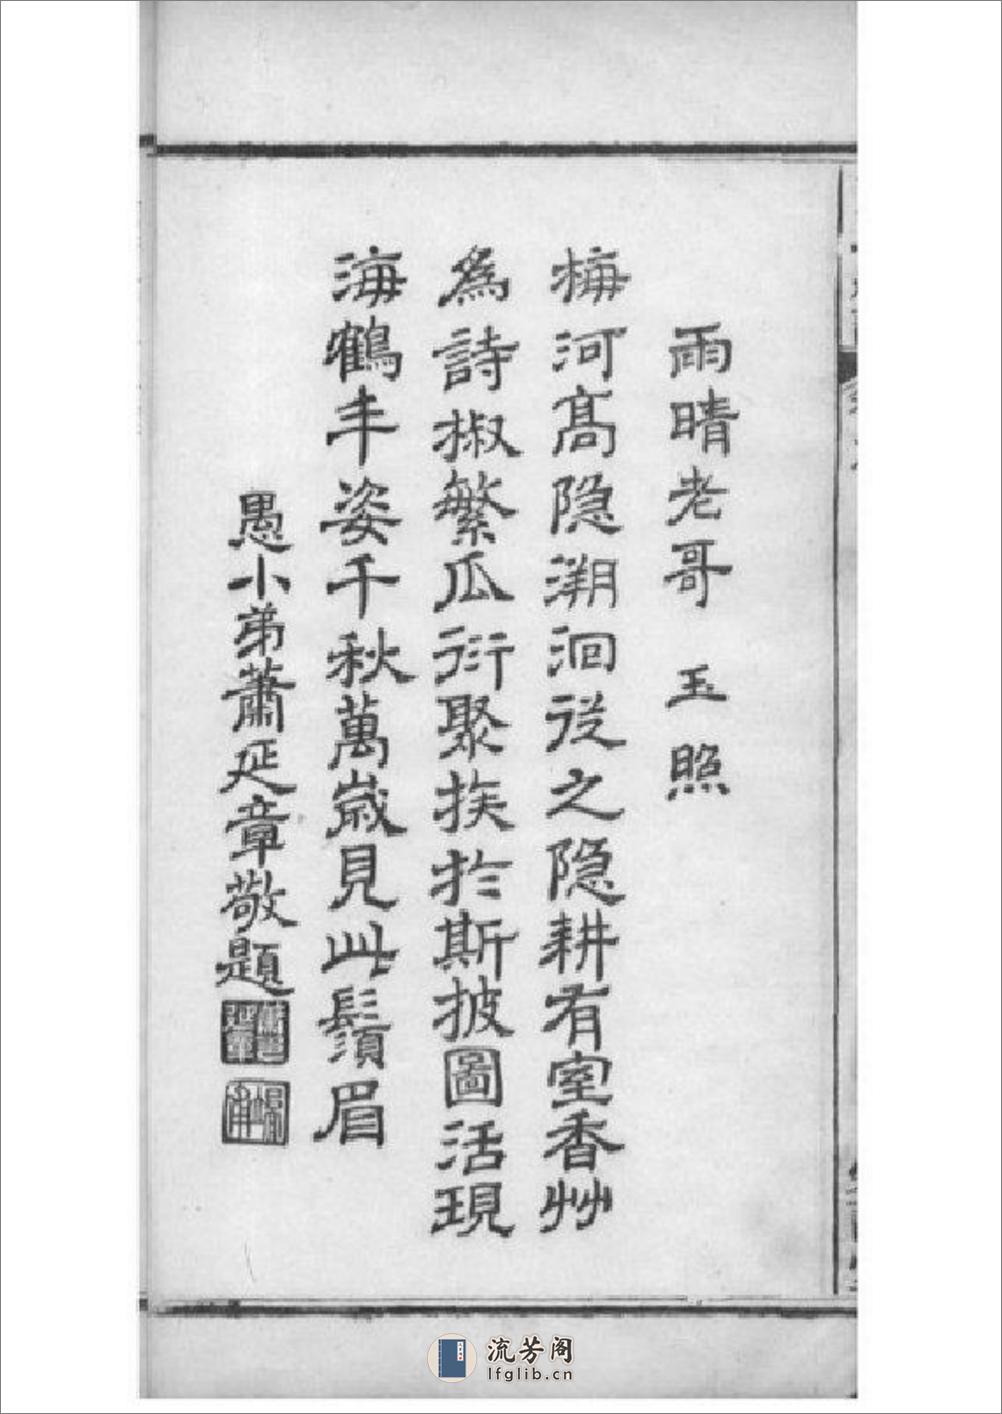 雨晴老哥 玉照
梅河高隐溯洄从之隐耕有室香艸
為詩椒繁瓜衍聚族於斯披圖活現
海鶴丰姿千秋萬歲見此鬚眉
愚小弟蕭延章敬題
流芳阁
lfglib.cn